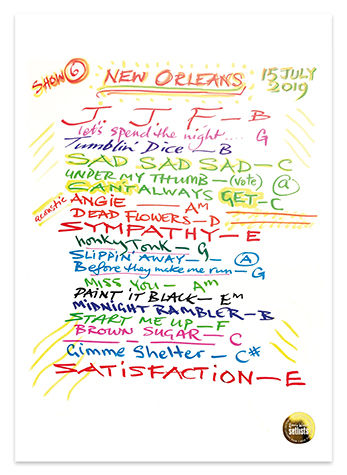 SHOW 6 NEW ORLEANS 15 JULY 2019
J. J. F. – B
let's spend the night.... G
Tumblin' Dice – B
SAD SAD SAD – C
UNDER MY THUMB – (vote) a
CAN'T ALWAYS GET – C
ACOUSTIC ANGIE — Am
DEAD FLOWERS – D
SYMPATHY – E
honky Tonk – G
SLIPPIN' AWAY – A
Before they make me run – G
MISS YOU – Am
PAINT iT BLACK – Em
MIDNIGHT RAMBLER – B
START ME UP – F
BROWN SUGAR – C
Gimme Shelter – C#
SATISFACTION – E
setlists